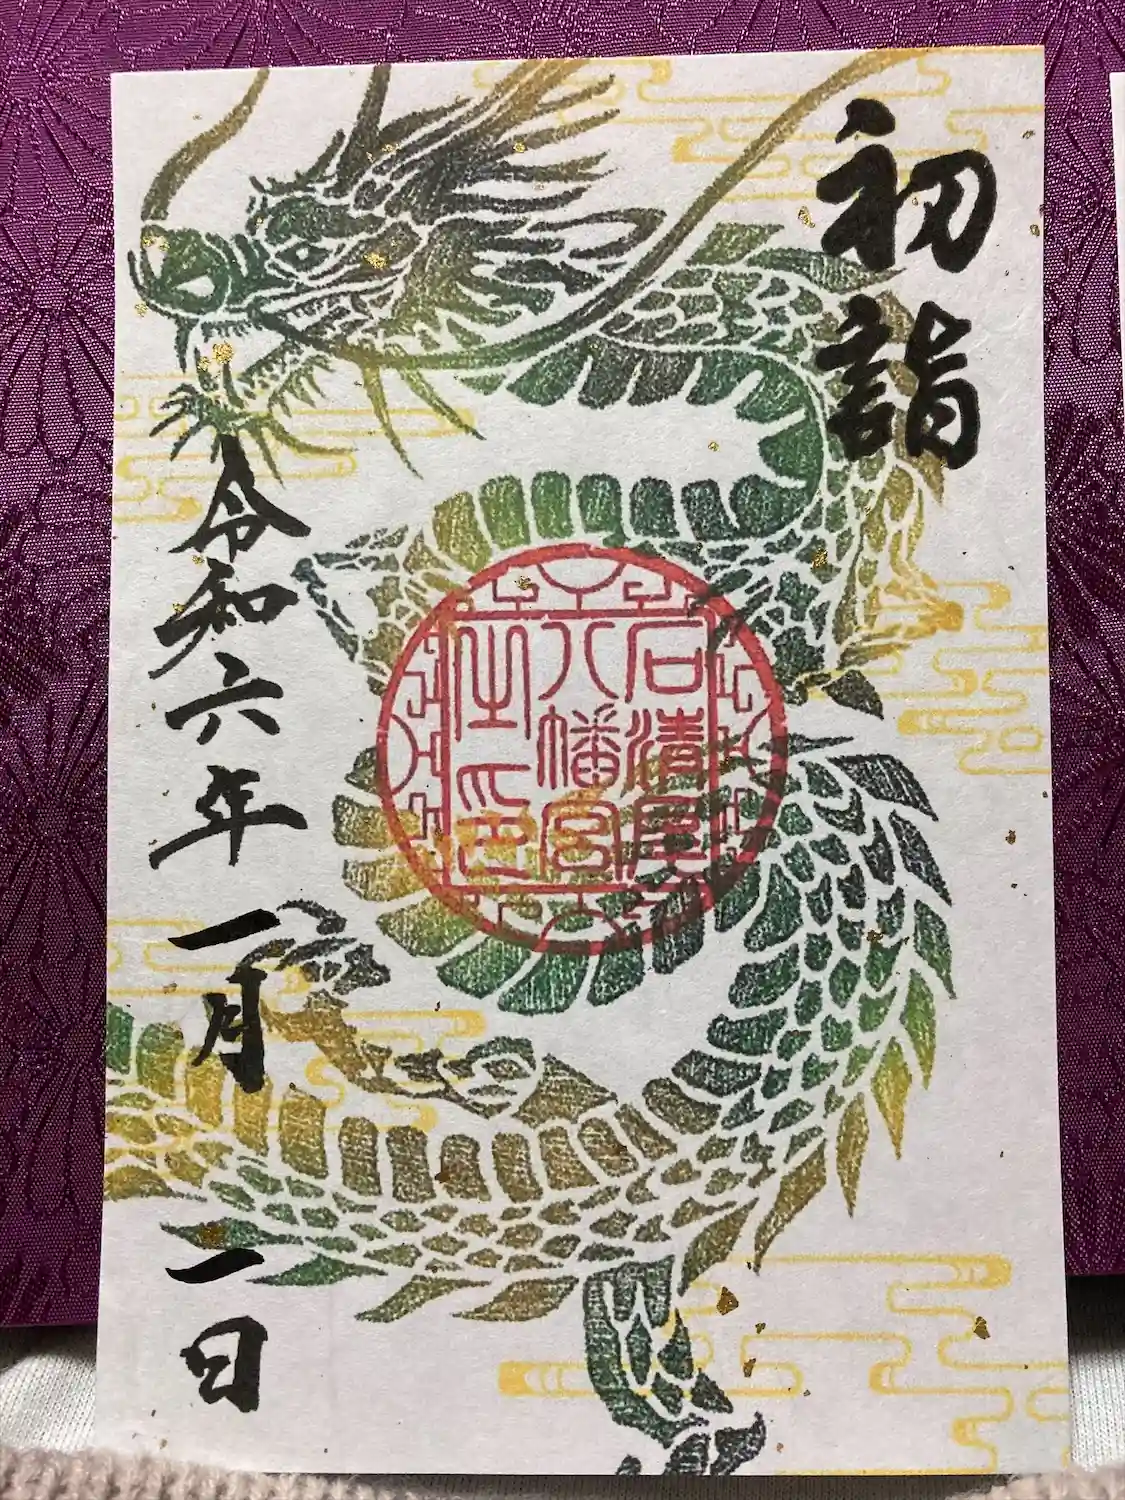 初詣
石清尾
八幡宮
之印
令和六年一月一日